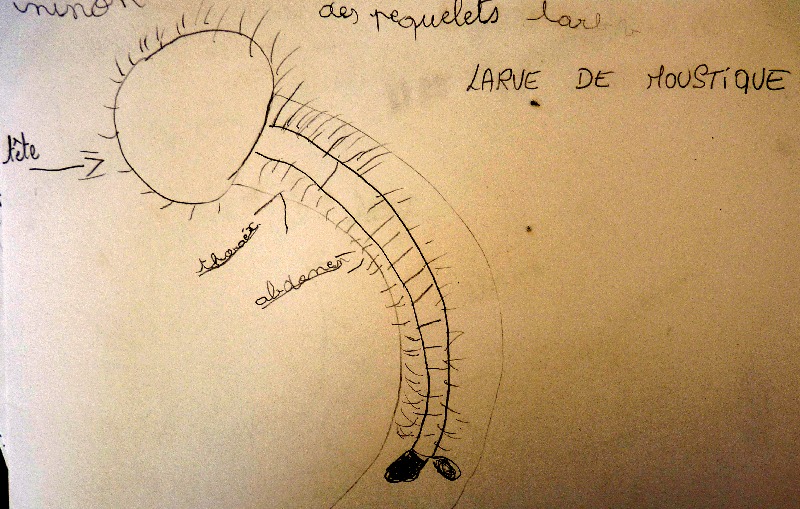 des pequelets
LARVE DE MOUSTIQUE
tête
thorax
abdomen